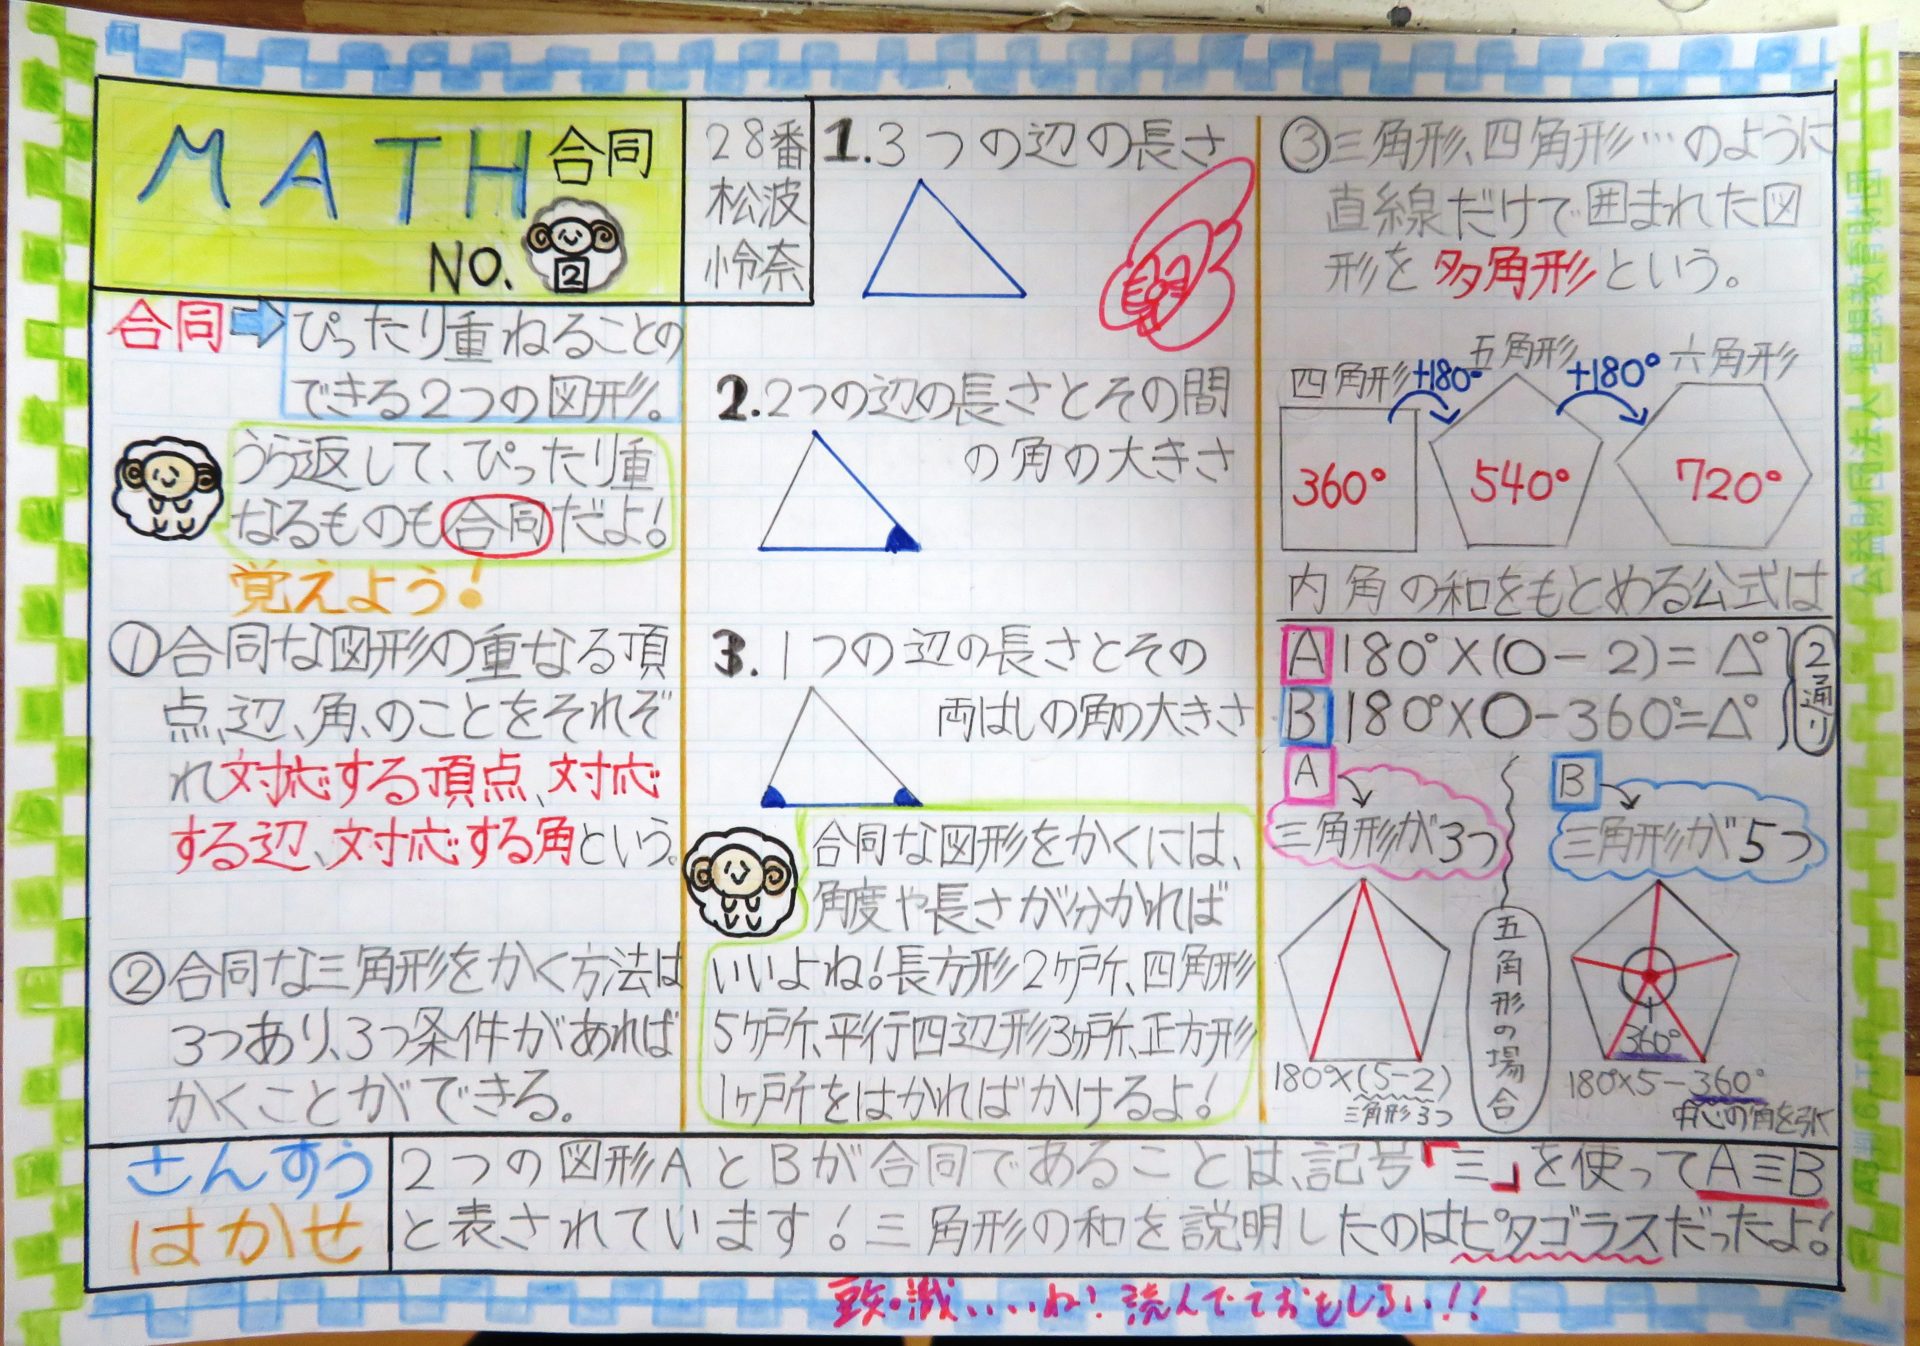 MATH 合同
NO. 2
28番
松波
怜奈
合同
ぴったり重ねることの
できる2つの図形。
うら返して、ぴったり重
なるものも合同だよ!
覚えよう!
①合同な図形の重なる頂
点、辺、角、のことをそれぞ
れ対応する頂点、対応
する辺、対応する角という。
②合同な三角形をかく方法は
3つあり、3つ条件があれば
かくことができる。
1.3つの辺の長さ
2.2つの辺の長さとその間
の角の大きさ
3.1つの辺の長さとその
両はしの角の大きさ
合同な図形をかくには、
角度や長さが分かれば
いいよね!長方形2ヶ所、四角形
5ヶ所、平行四辺形3ヶ所、正方形
1ヶ所をはかればかけるよ!
③三角形、四角形…のように
直線だけで囲まれた図
形を多角形という。
四角形 +180° 五角形 +180° 六角形
360° 540° 720°
内角の和をもとめる公式は
A 180°×(○-2)=△°
B 180°×○-360°=△°
2通り
A
三角形が3つ
B
三角形が5つ
五角形の場合
360°
180°×(5-2)
三角形3つ
180°×5-360°
中心の角を引く
さんすう
はかせ
2つの図形AとBが合同であることは、記号「≡」を使ってA≡B
と表されています!三角形の和を説明したのはピタゴラスだったよ!
いいね!読んでておもしろい!!